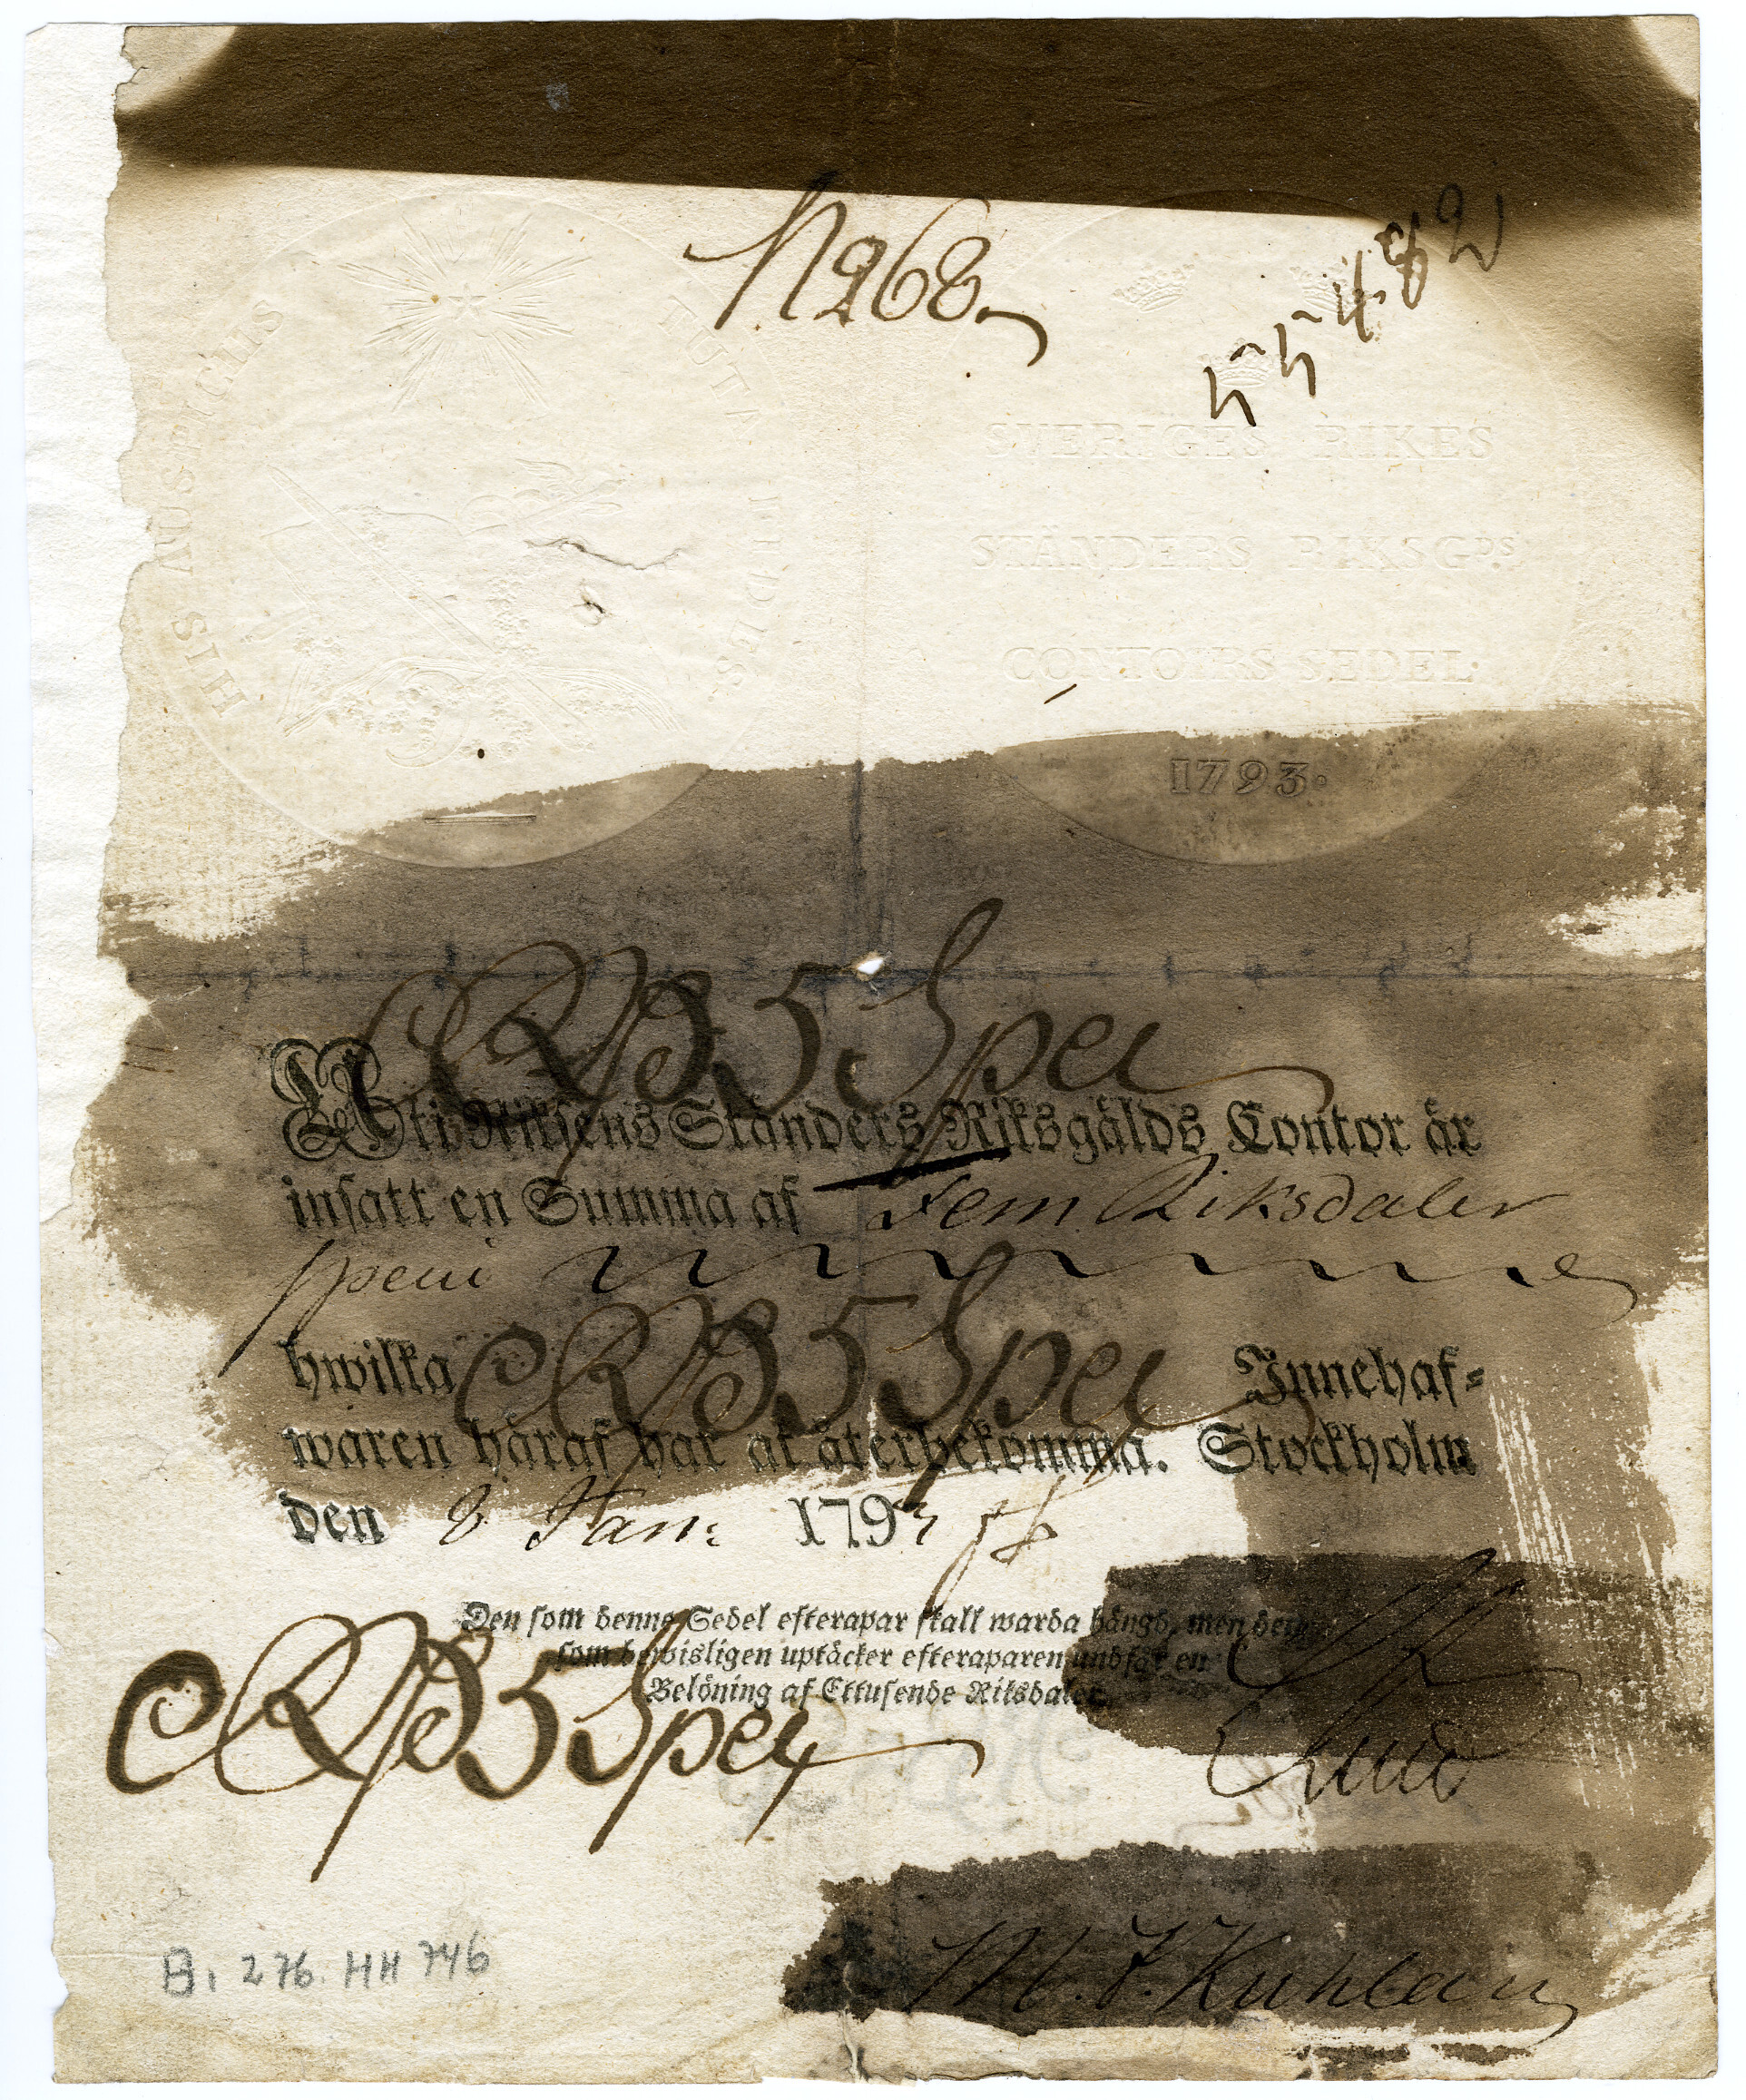 N 268
HISS AUSPICIIS TUTA FIDES
SVERIGES RIKES
STÄNDERS RIKSGDS
CONTOIRS SEDEL.
1793.
5 Spec
Uti Riksens Ständers Riksgälds Contor är
insatt en Summa af Fem Riksdaler
specie
hwilka 5 Spec Innehaf-
waren häraf har at återbekomma. Stockholm
den 8 Jan: 1793
Den som denne Sedel efterapar skall warda hängd, men den
som bewisligen uptäcker efteraparen undfår en
Belöning af Ettusende Riksdaler
5 Spec
B. 276. HH 746